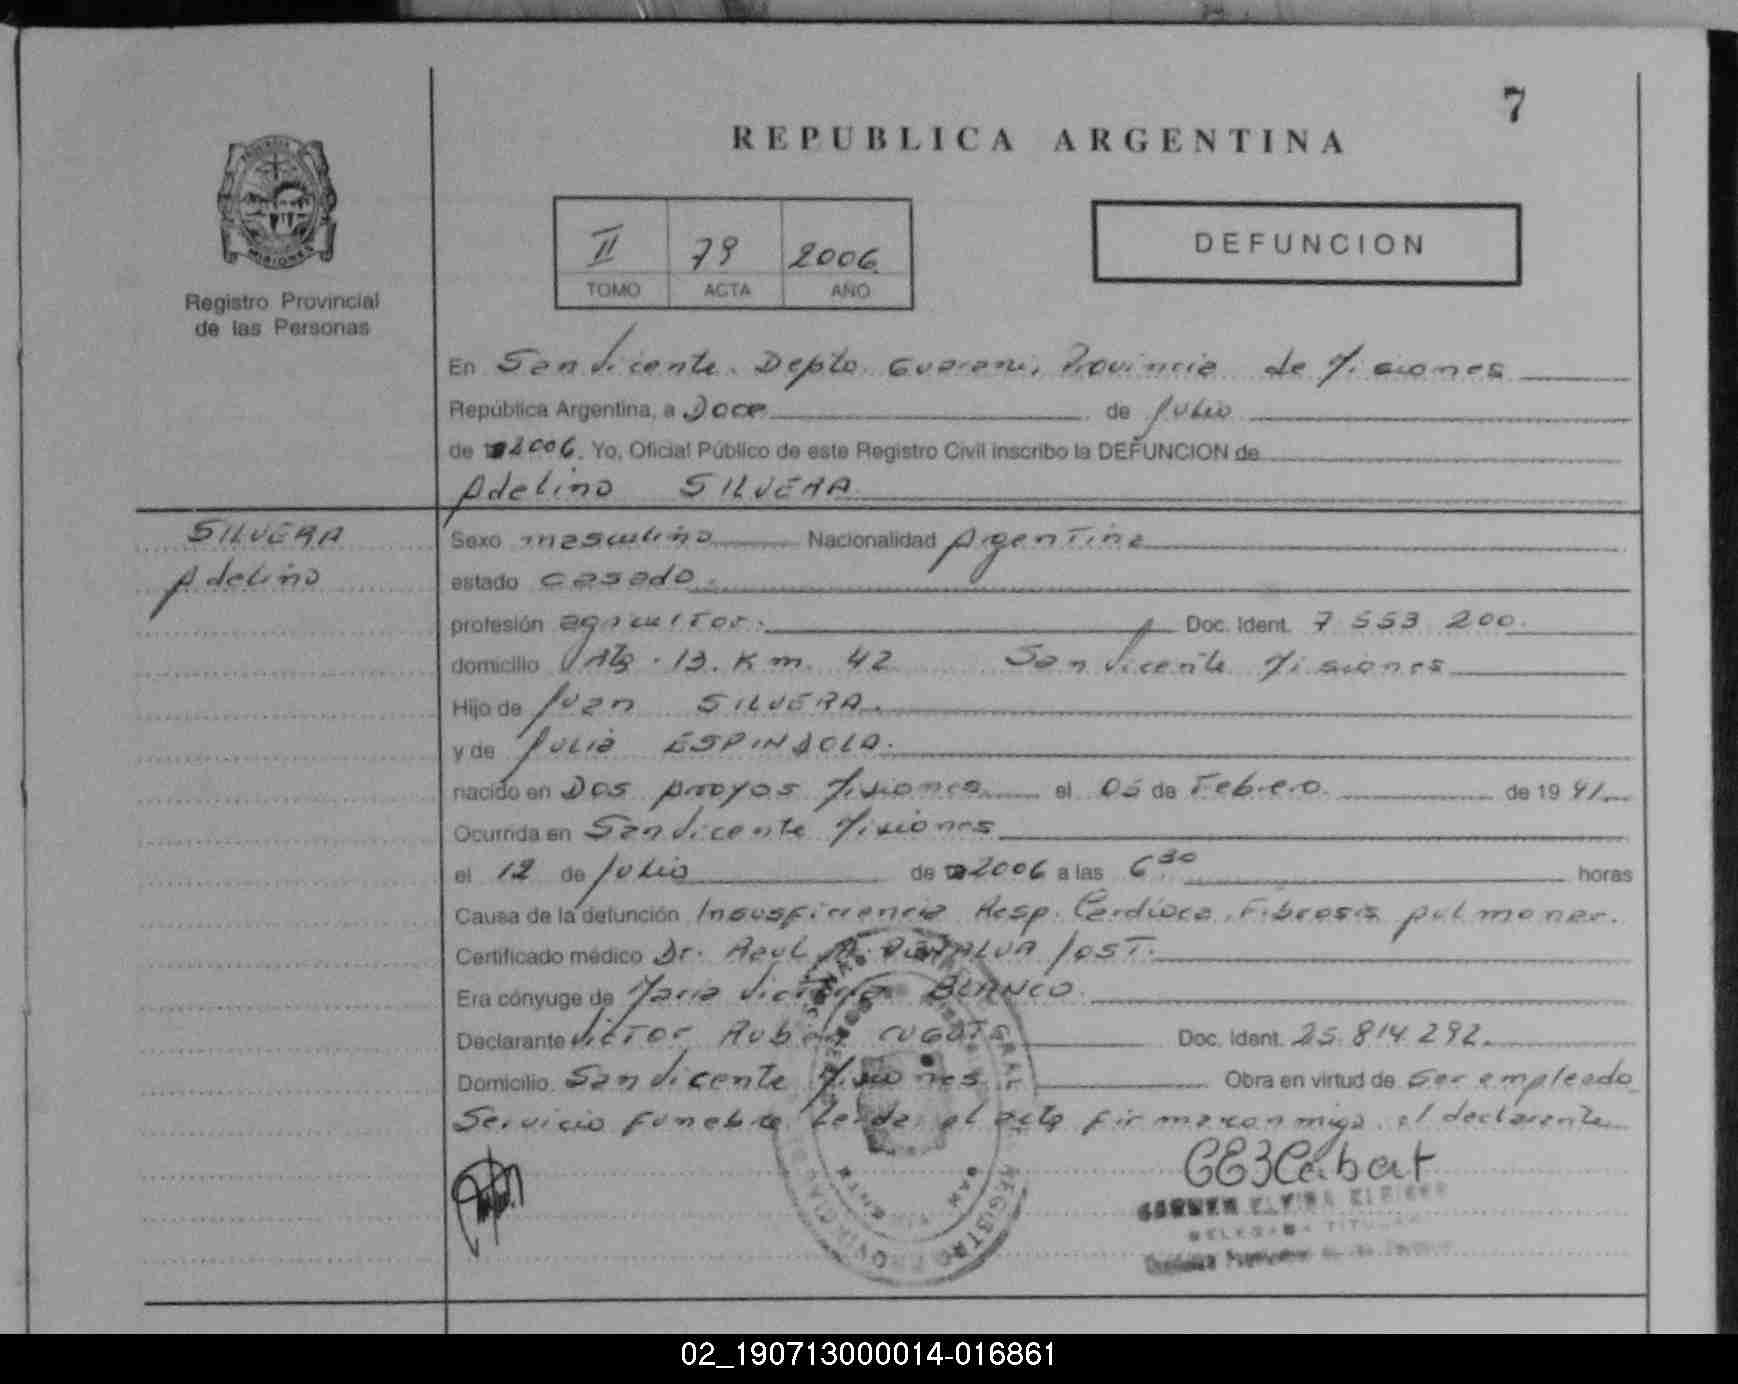 7
REPUBLICA ARGENTINA
PROVINCIA DE
MISIONES
Registro Provincial
de las Personas
II 79 2006
TOMO ACTA AÑO
DEFUNCION
En San Vicente. Depto. Guarani, Provincia de Misiones
República Argentina, a Doce de Julio
de 2006. Yo, Oficial Público de este Registro Civil inscribo la DEFUNCION de
Adelino SILVERA
SILVERA
Adelino
Sexo masculino Nacionalidad Argentina
estado casado.
profesión agricultor. Doc. Ident. 7 553 200.
domicilio Ruta 13. Km. 42 San Vicente Misiones
Hijo de Juan SILVERA.
y de Julia ESPINDOLA.
nacido en Dos Arroyos Misiones el 05 de Febrero. de 19 41
Ocurrida en San Vicente Misiones
el 12 de Julio de 2006 a las 6.30 horas
Causa de la defunción Insusficiencia Resp. Cardiaca, Fibrosis pulmonar.
Certificado médico Dr. Raul A. JOST.
Era cónyuge de Maria BLANCO.
Declarante Victor Ruben Doc. Ident. 25.814.292.
Domicilio San Vicente Misiones Obra en virtud de ser empleado
Servicio funebre Leida el acta firma conmigo el declarante
REGISTRO PROVINCIAL DE
SAN VICENTE
02_190713000014-016861